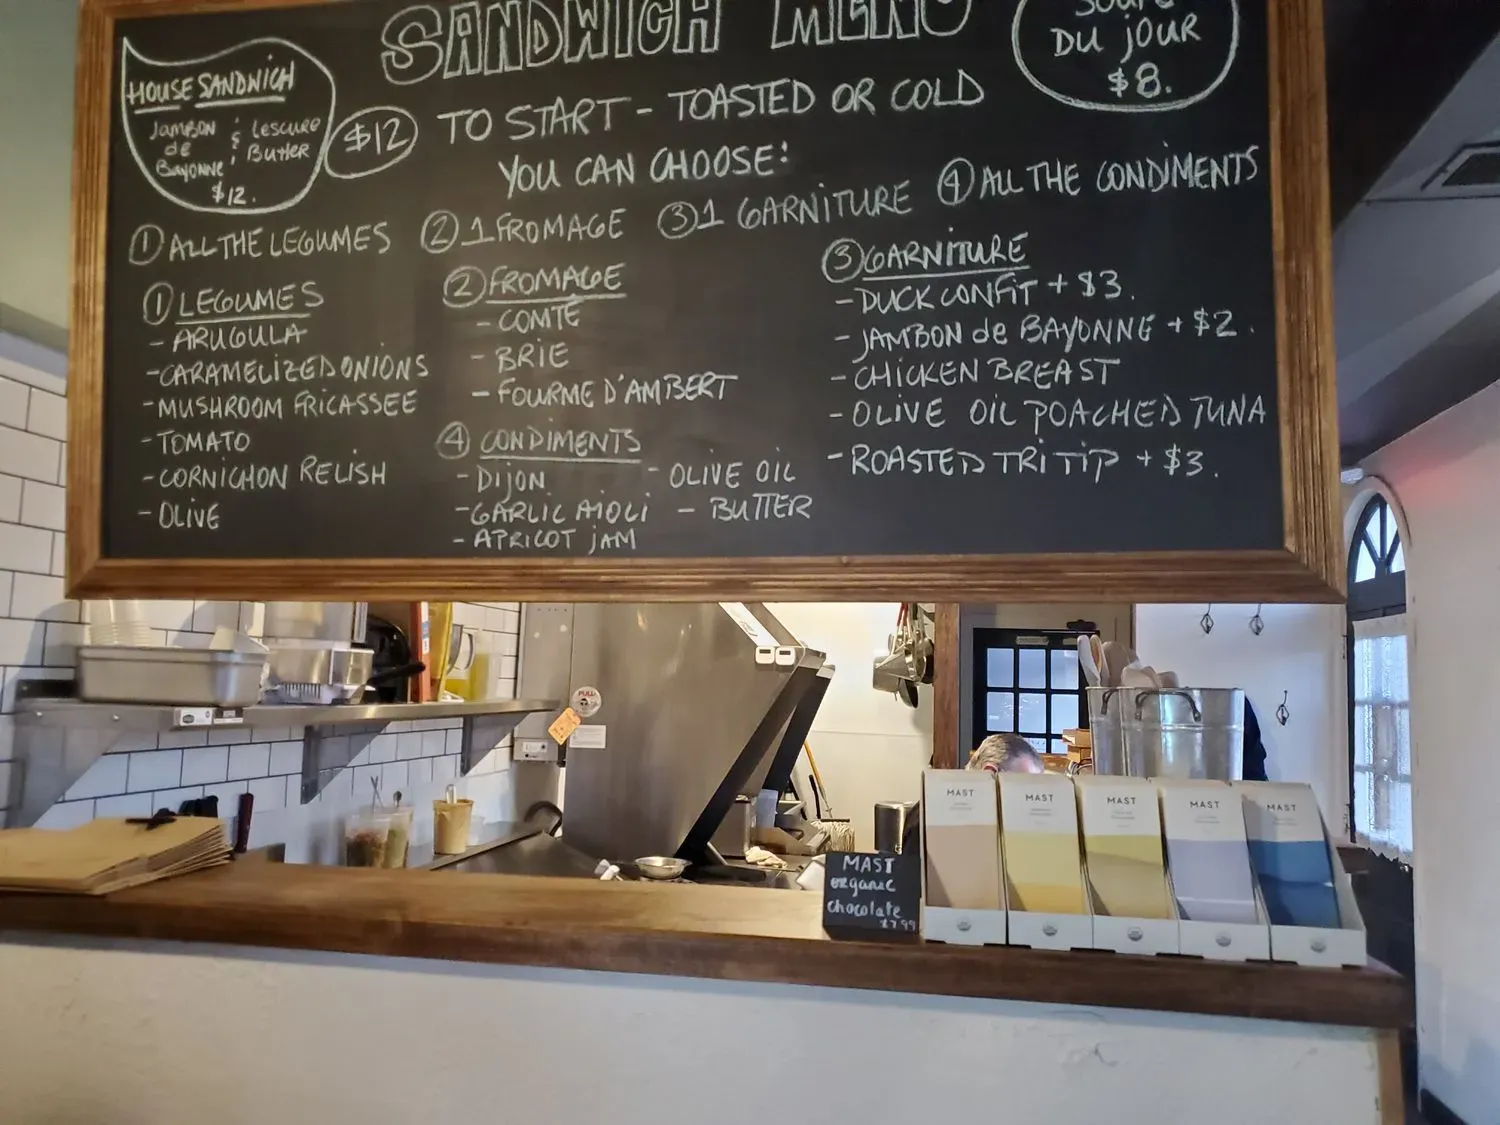 SANDWICH MENU
HOUSE SANDWICH
JAMBON & LESCURE
de BUTTER
BAYONNE
$12.
$12
SOUPE
DU JOUR
$8.
TO START - TOASTED OR COLD
YOU CAN CHOOSE:
① ALL THE LEGUMES ② 1 FROMAGE ③ 1 GARNITURE ④ ALL THE CONDIMENTS
① LEGUMES
- ARUGULA
- CARAMELIZED ONIONS
- MUSHROOM FRICASSEE
- TOMATO
- CORNICHON RELISH
- OLIVE
② FROMAGE
- COMTÉ
- BRIE
- FOURME D'AMBERT
④ CONDIMENTS
- DIJON - OLIVE OIL
- GARLIC AIOLI - BUTTER
- APRICOT JAM
③ GARNITURE
- DUCK CONFIT + $3.
- JAMBON de BAYONNE + $2.
- CHICKEN BREAST
- OLIVE OIL POACHED TUNA
- ROASTED TRI TIP + $3.
PULL
MAST
organic
chocolate
$7.99
MAST
MAST
MAST
MAST
MAST